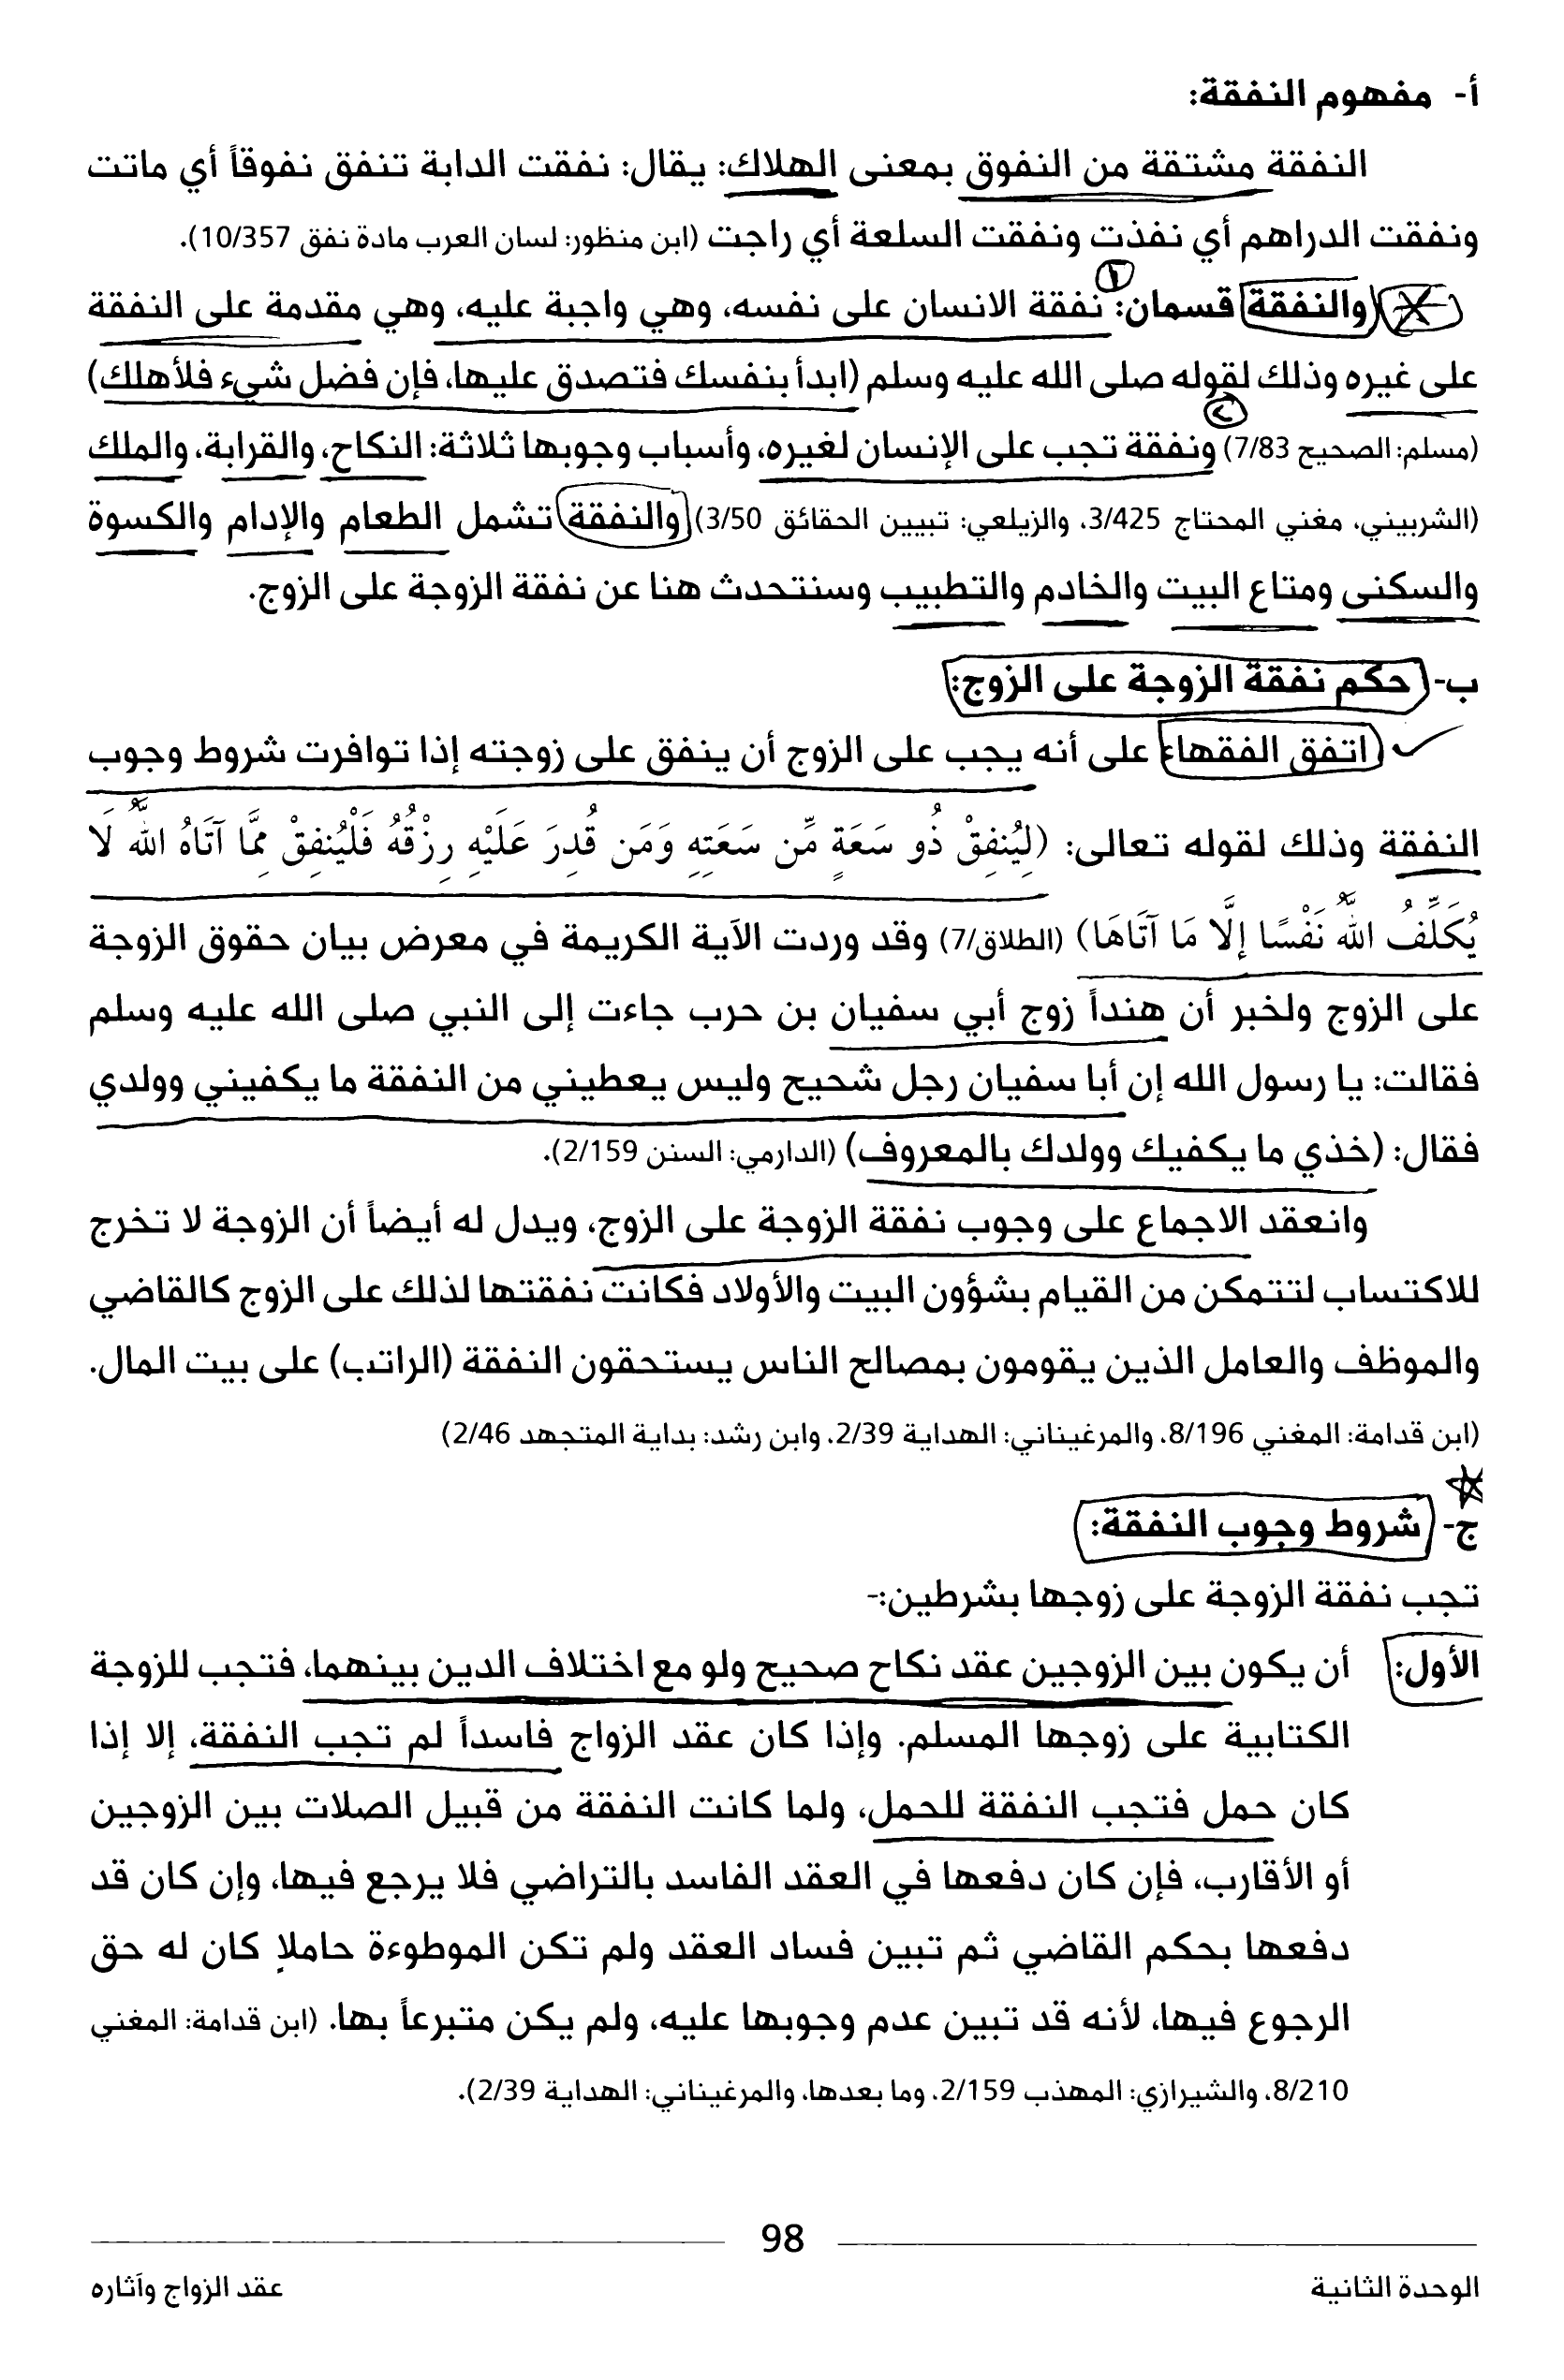 أ- مفهوم النفقة:
النفقة مشتقة من النفوق بمعنى الهلاك: يقال: نفقت الدابة تنفق نفوقاً أي ماتت
ونفقت الدراهم أي نفذت ونفقت السلعة أي راجت (ابن منظور: لسان العرب مادة نفق 10/357).
والنفقة قسمان: نفقة الانسان على نفسه، وهي واجبة عليه، وهي مقدمة على النفقة
على غيره وذلك لقوله صلى الله عليه وسلم (ابدأ بنفسك فتصدق عليها، فإن فضل شيء فلأهلك)
(مسلم: الصحيح 7/83) ونفقة تجب على الإنسان لغيره، وأسباب وجوبها ثلاثة: النكاح، والقرابة، والملك
(الشربيني، مغني المحتاج 3/425، والزيلعي: تبيين الحقائق 3/50) والنفقة تشمل الطعام والإدام والكسوة
والسكنى ومتاع البيت والخادم والتطبيب وسنتحدث هنا عن نفقة الزوجة على الزوج.
ب- حكم نفقة الزوجة على الزوج:
اتفق الفقهاء على أنه يجب على الزوج أن ينفق على زوجته إذا توافرت شروط وجوب
النفقة وذلك لقوله تعالى: (لِيُنفِقْ ذُو سَعَةٍ مِّن سَعَتِهِ وَمَن قُدِرَ عَلَيْهِ رِزْقُهُ فَلْيُنفِقْ مِمَّا آتَاهُ اللَّهُ لَا
يُكَلِّفُ اللَّهُ نَفْسًا إِلَّا مَا آتَاهَا) (الطلاق/7) وقد وردت الآية الكريمة في معرض بيان حقوق الزوجة
على الزوج ولخبر أن هنداً زوج أبي سفيان بن حرب جاءت إلى النبي صلى الله عليه وسلم
فقالت: يا رسول الله إن أبا سفيان رجل شحيح وليس يعطيني من النفقة ما يكفيني وولدي
فقال: (خذي ما يكفيك وولدك بالمعروف) (الدارمي: السنن 2/159).
وانعقد الاجماع على وجوب نفقة الزوجة على الزوج، ويدل له أيضاً أن الزوجة لا تخرج
للاكتساب لتتمكن من القيام بشؤون البيت والأولاد فكانت نفقتها لذلك على الزوج كالقاضي
والموظف والعامل الذين يقومون بمصالح الناس يستحقون النفقة (الراتب) على بيت المال.
(ابن قدامة: المغني 8/196، والمرغيناني: الهداية 2/39، وابن رشد: بداية المتجهد 2/46)
ج- شروط وجوب النفقة:
تجب نفقة الزوجة على زوجها بشرطين:-
الأول: أن يكون بين الزوجين عقد نكاح صحيح ولو مع اختلاف الدين بينهما، فتجب للزوجة
الكتابية على زوجها المسلم. وإذا كان عقد الزواج فاسداً لم تجب النفقة، إلا إذا
كان حمل فتجب النفقة للحمل، ولما كانت النفقة من قبيل الصلات بين الزوجين
أو الأقارب، فإن كان دفعها في العقد الفاسد بالتراضي فلا يرجع فيها، وإن كان قد
دفعها بحكم القاضي ثم تبين فساد العقد ولم تكن الموطوءة حاملاٍ كان له حق
الرجوع فيها، لأنه قد تبين عدم وجوبها عليه، ولم يكن متبرعاً بها. (ابن قدامة: المغني
8/210، والشيرازي: المهذب 2/159، وما بعدها، والمرغيناني: الهداية 2/39).
98
الوحدة الثانية
عقد الزواج وآثاره